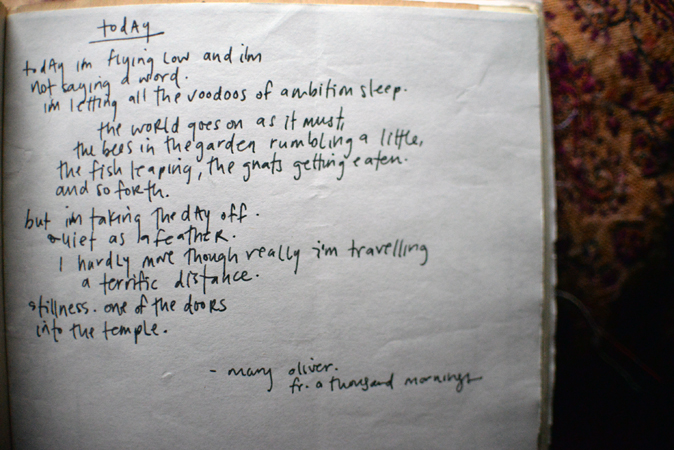 today
today im flying low and i'm
not saying a word.
im letting all the voodoos of ambition sleep.
the world goes on as it must,
the bees in the garden rumbling a little,
the fish leaping, the gnats getting eaten.
and so forth.
but im taking the day off.
quiet as a feather.
I hardly move though really i'm travelling
a terrific distance.
stillness. one of the doors
into the temple.
- mary oliver.
fr. a thousand mornings